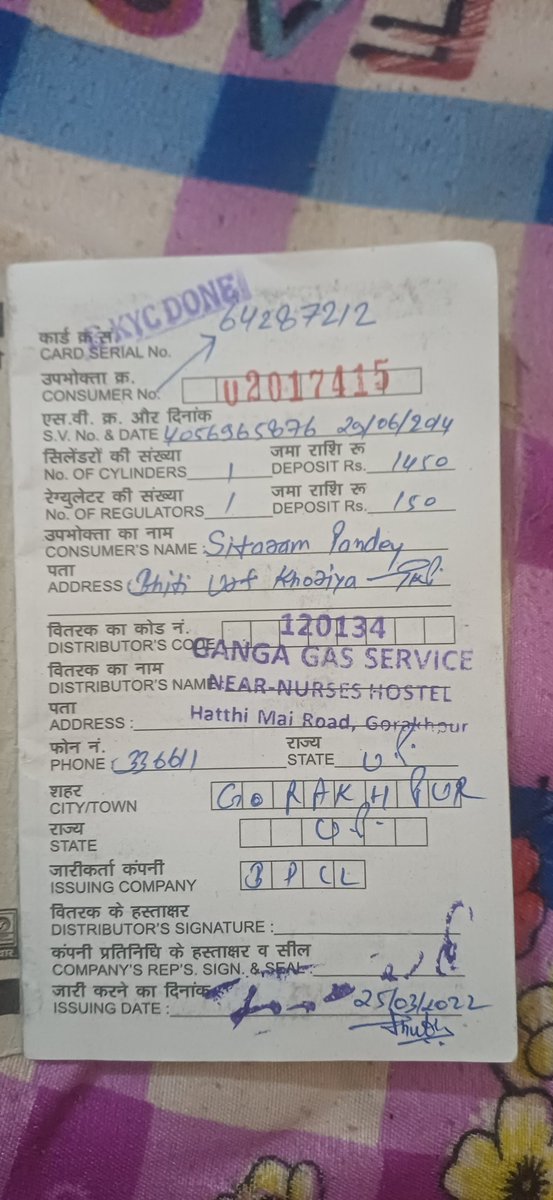 e-KYC DONE
कार्ड क्र.सं. 64287212
CARD SERIAL No.
उपभोक्ता क्र.
CONSUMER No. 02017415
एस.वी. क्र. और दिनांक
S.V. No. & DATE 4056965876 29/06/2014
सिलेंडरों की संख्या जमा राशि रू
No. OF CYLINDERS 1 DEPOSIT Rs. 1450
रेग्युलेटर की संख्या जमा राशि रू
No. OF REGULATORS 1 DEPOSIT Rs. 150
उपभोक्ता का नाम
CONSUMER'S NAME : Sitaram Pandey
पता
ADDRESS Bhiti Urf Khoriya
वितरक का कोड नं.
DISTRIBUTOR'S CODE 120134
वितरक का नाम GANGA GAS SERVICE
DISTRIBUTOR'S NAME NEAR-NURSES HOSTEL
पता
ADDRESS : Hatthi Mai Road, Gorakhpur
फोन नं. राज्य
PHONE : 336611 STATE U.P.
शहर
CITY/TOWN GORAKHPUR
राज्य
STATE U.P.
जारीकर्ता कंपनी
ISSUING COMPANY BPCL
वितरक के हस्ताक्षर
DISTRIBUTOR'S SIGNATURE :
कंपनी प्रतिनिधि के हस्ताक्षर व सील
COMPANY'S REP'S. SIGN. & SEAL :
जारी करने का दिनांक
ISSUING DATE : 25/03/2022